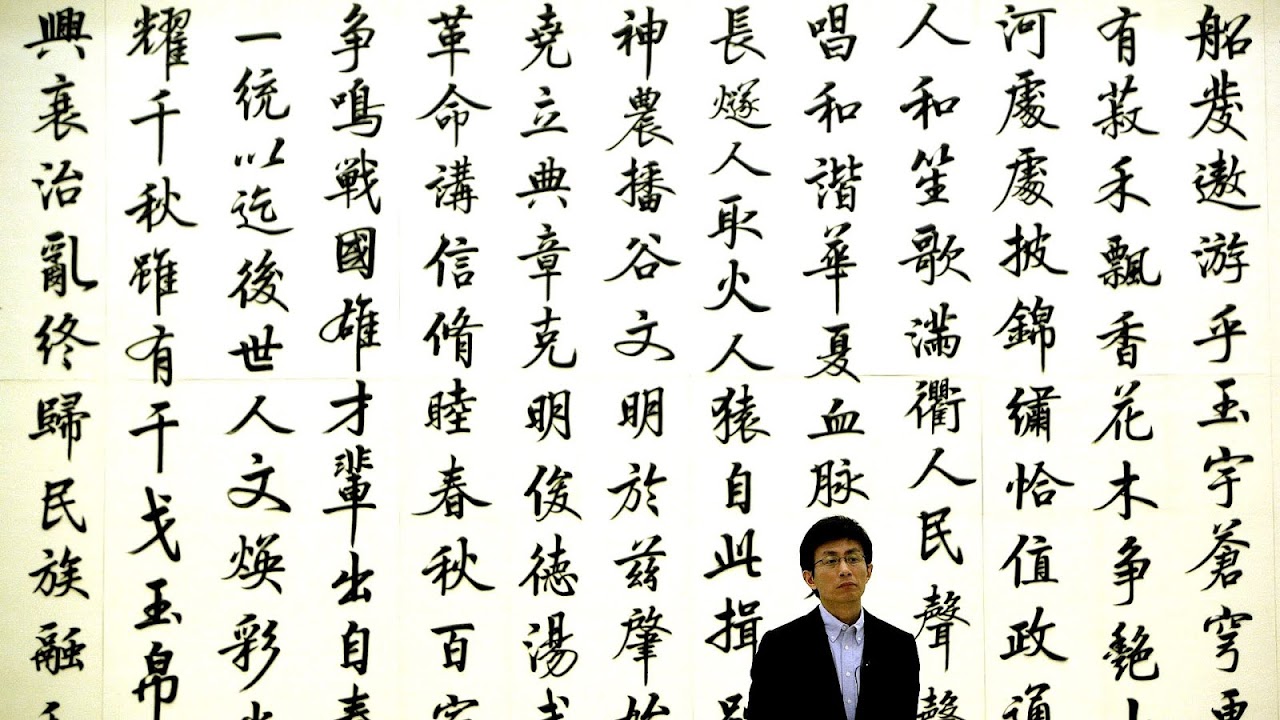 船發遨游乎玉宇蒼穹更
有菽禾飄香花木争艷
河處處披錦繡恰值政通
人和笙歌滿衢人民聲聲
唱和諧華夏血脉
長燧人取火人猿自此揖别
神農播谷文明於兹肇始
堯立典章克明俊德湯武
革命講信脩睦春秋百家
争鳴戰國雄才輩出自秦
一統以迄後世人文焕彩光
耀千秋雖有干戈玉帛
興衰治亂終歸民族融